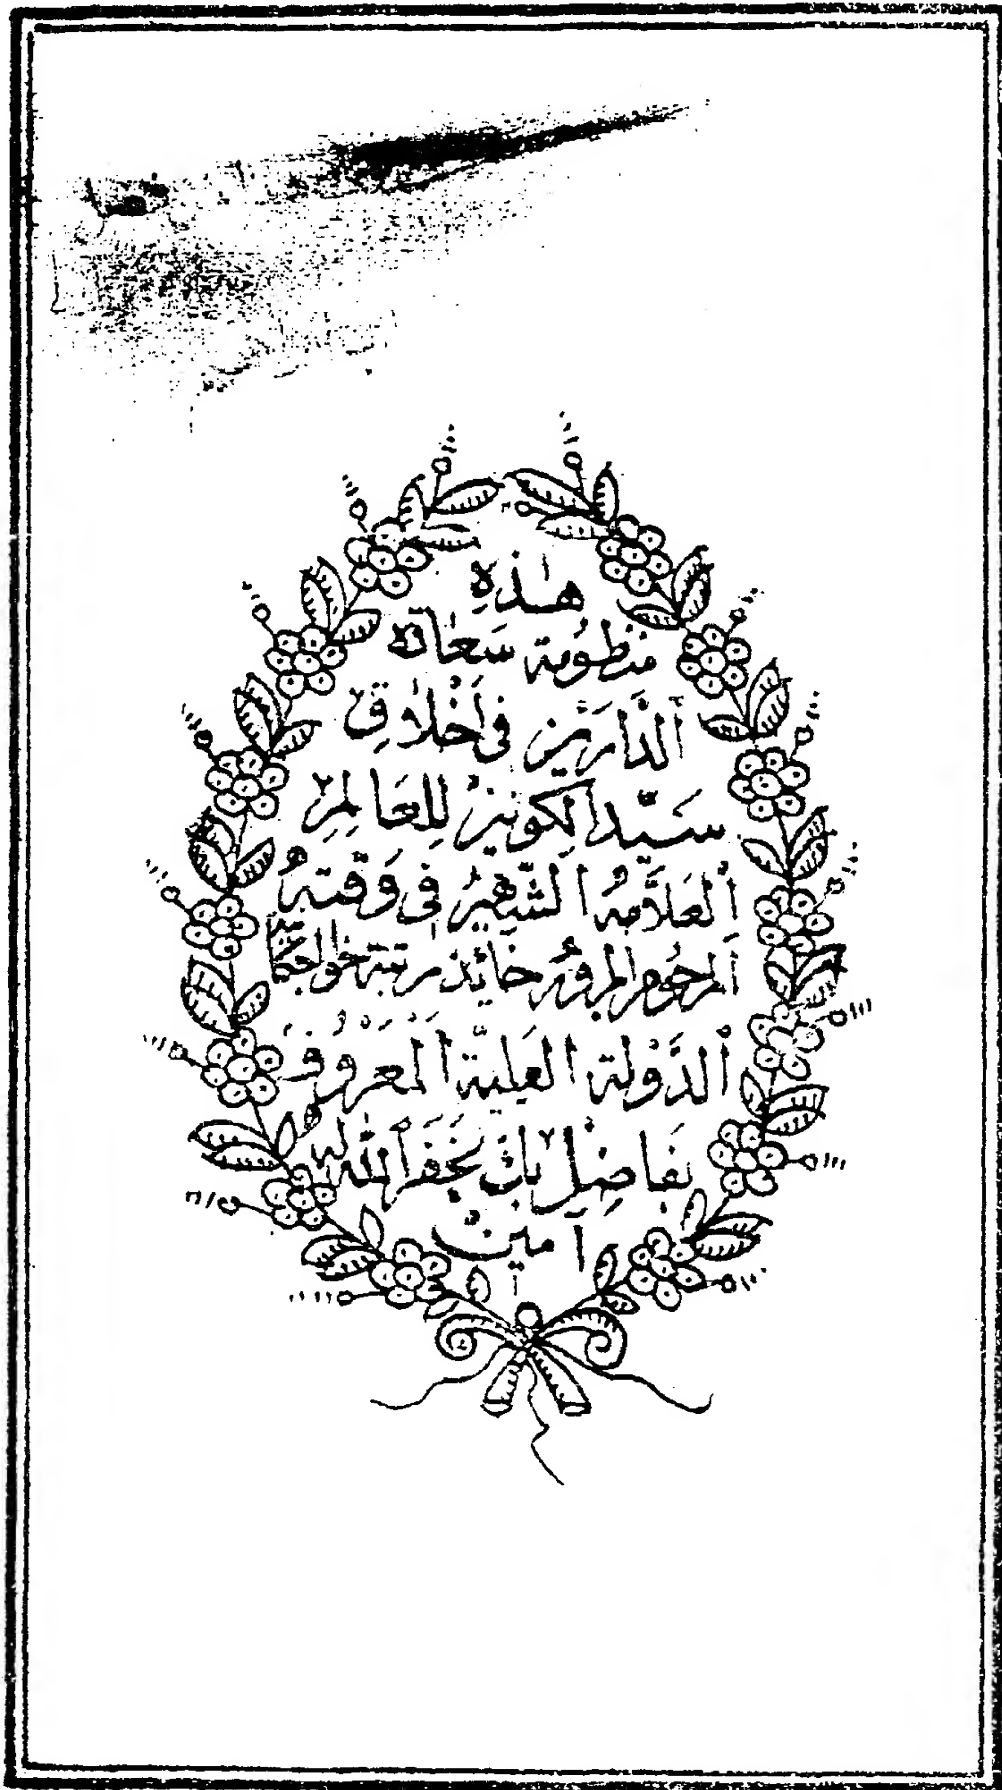 هٰذِهِ
منظُومة سَعٰادة
اَلدَّارَيْن فى اَخْلٰاقِ
سَيّد اَلكونين لِلعَالِمِ
اَلعَلاَّمهُ الشّهِيرُ فى وَقتهُ
اَلمرحُوم المبرُور حَائِذ رتبة خوا
اَلدَّوْلة العَلِيّة اَلمَعرُوف
بفَاضِل بك غَفَرَ اَللّٰه له
آمين